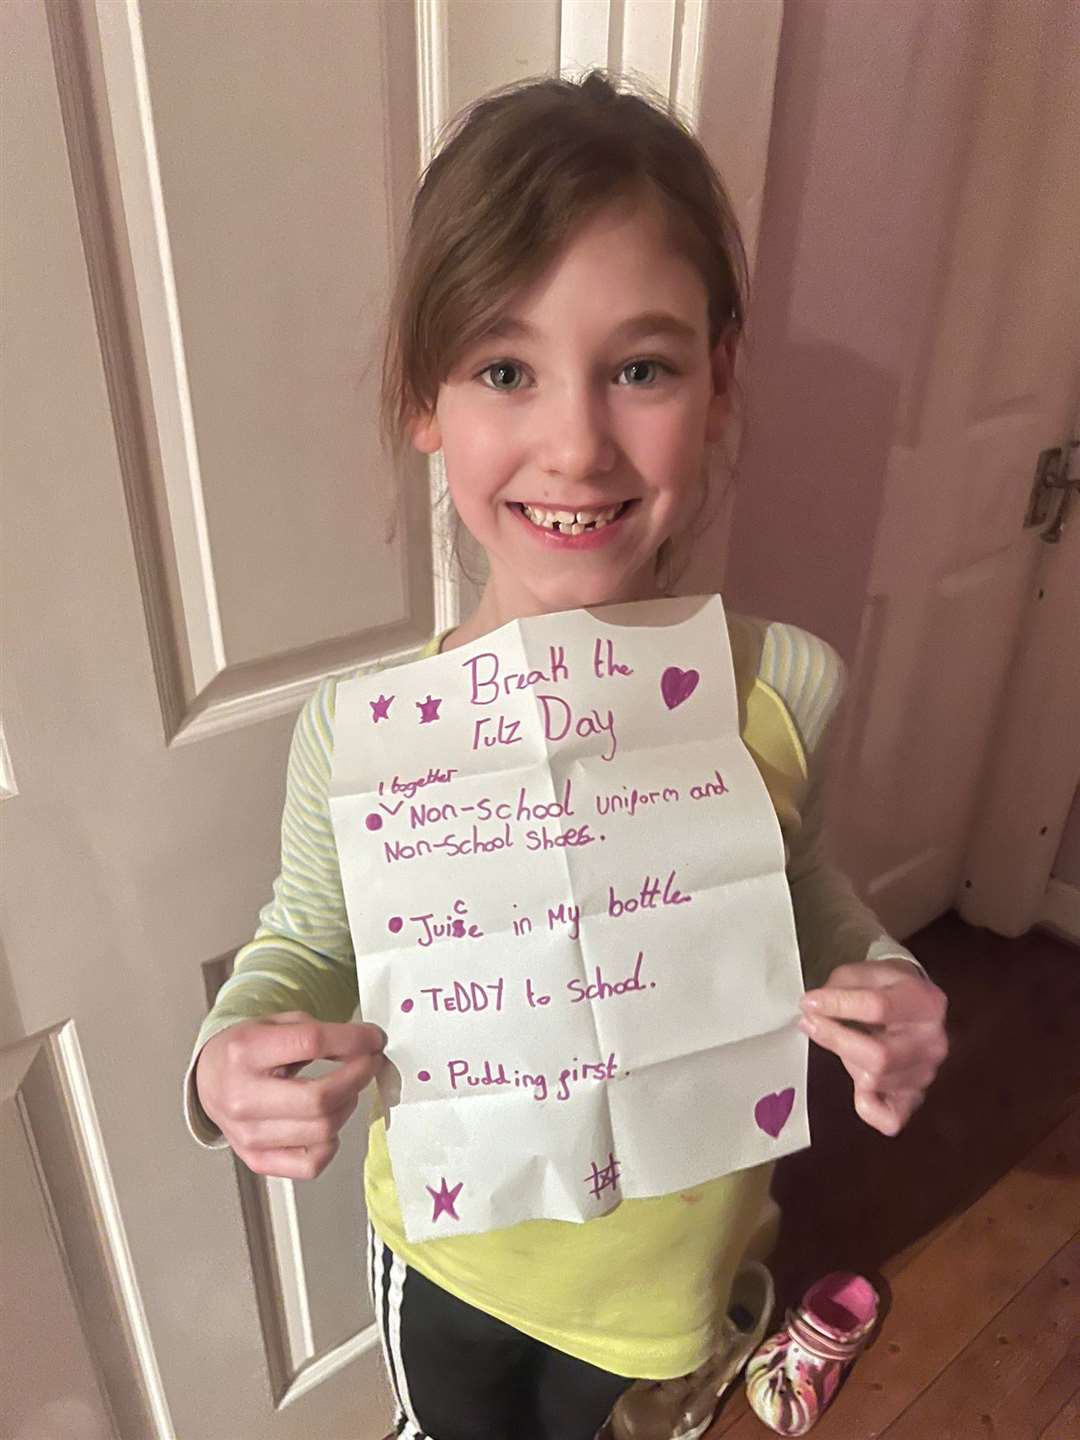 Break the
rulz Day
1 together
Non-School uniform and
Non-School Shoes.
Juice in My bottle.
TeDDY to School.
Pudding first.